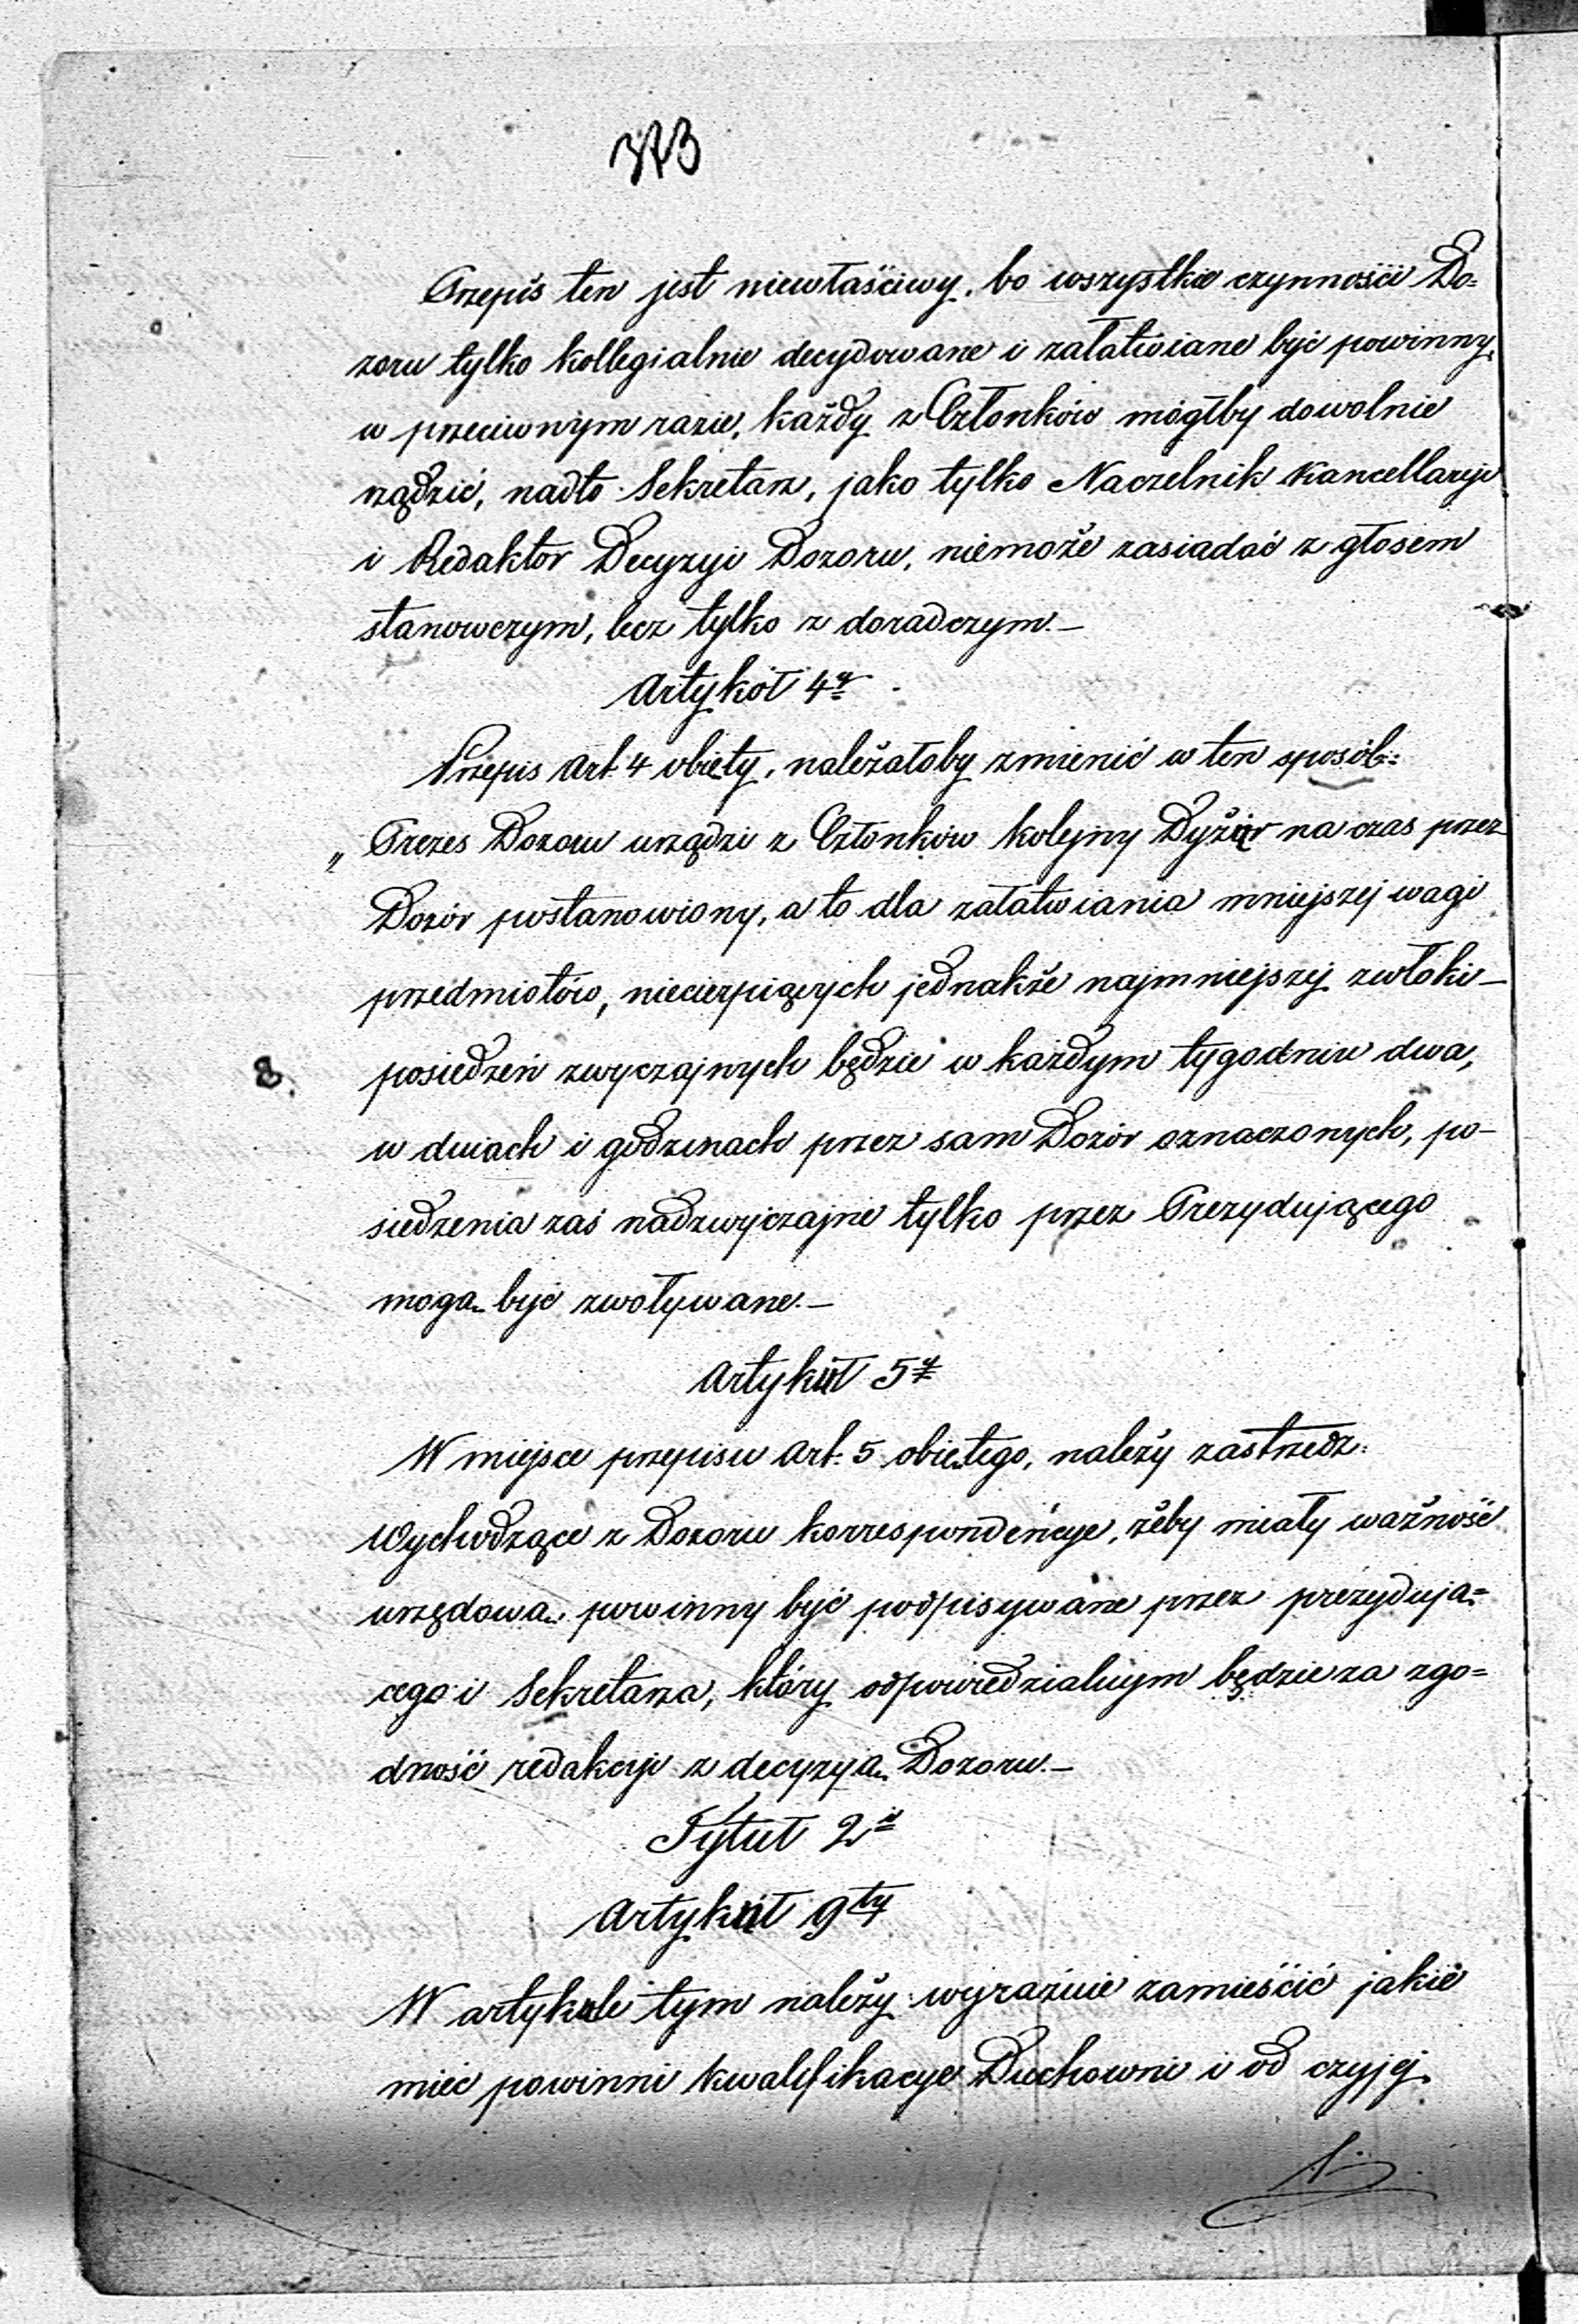 373
Przepis ten jest niewłaściwy, bo wszystkie czynności Do=
zoru tylko kollegialnie decydowane i załatwiane być powinny,
w przeciwnym razie, każdy z Członków mógłby dowolnie
rządzić, nadto Sekretarz, jako tylko Naczelnik Kancellaryi
i Redaktor Decyzyi Dozoru, niemoże zasiadać z głosem
stanowczym, lecz tylko z doradczym.—
Artykół 4y
Przepis Art. 4 objęty, należałoby zmienić w ten sposób:
„Prezes Dozoru urządzi z Członków kolejny Dyżur na czas przez
Dozór postanowiony, a to dla załatwiania mniejszej wagi
przedmiotów, niecierpiących jednakże najmniejszej zwłoki—
8. posiedzeń zwyczajnych będzie w każdym tygodniu dwa,
w dniach i godzinach przez sam Dozór oznaczonych, po-
siedzenia zaś nadzwyczajne tylko przez Prezydującego
mogą być zwoływane.—
Artykuł 5y
W miejsce przepisu Art. 5 objętego, należy zastrzedz:
Wychodzące z Dozoru korrespondencye, żeby miały ważność
urzędową, powinny być podpisywane przez prezydują=
cego i Sekretarza, który odpowiedzialnym będzie za zgo=
dność redakcyi z decyzyą Dozoru.—
Tytuł 2i
Artykuł 9ty
W artykule tym należy wyraźnie zamieścić jakie
mieć powinni kwalifikacye Duchowni i od czyjej